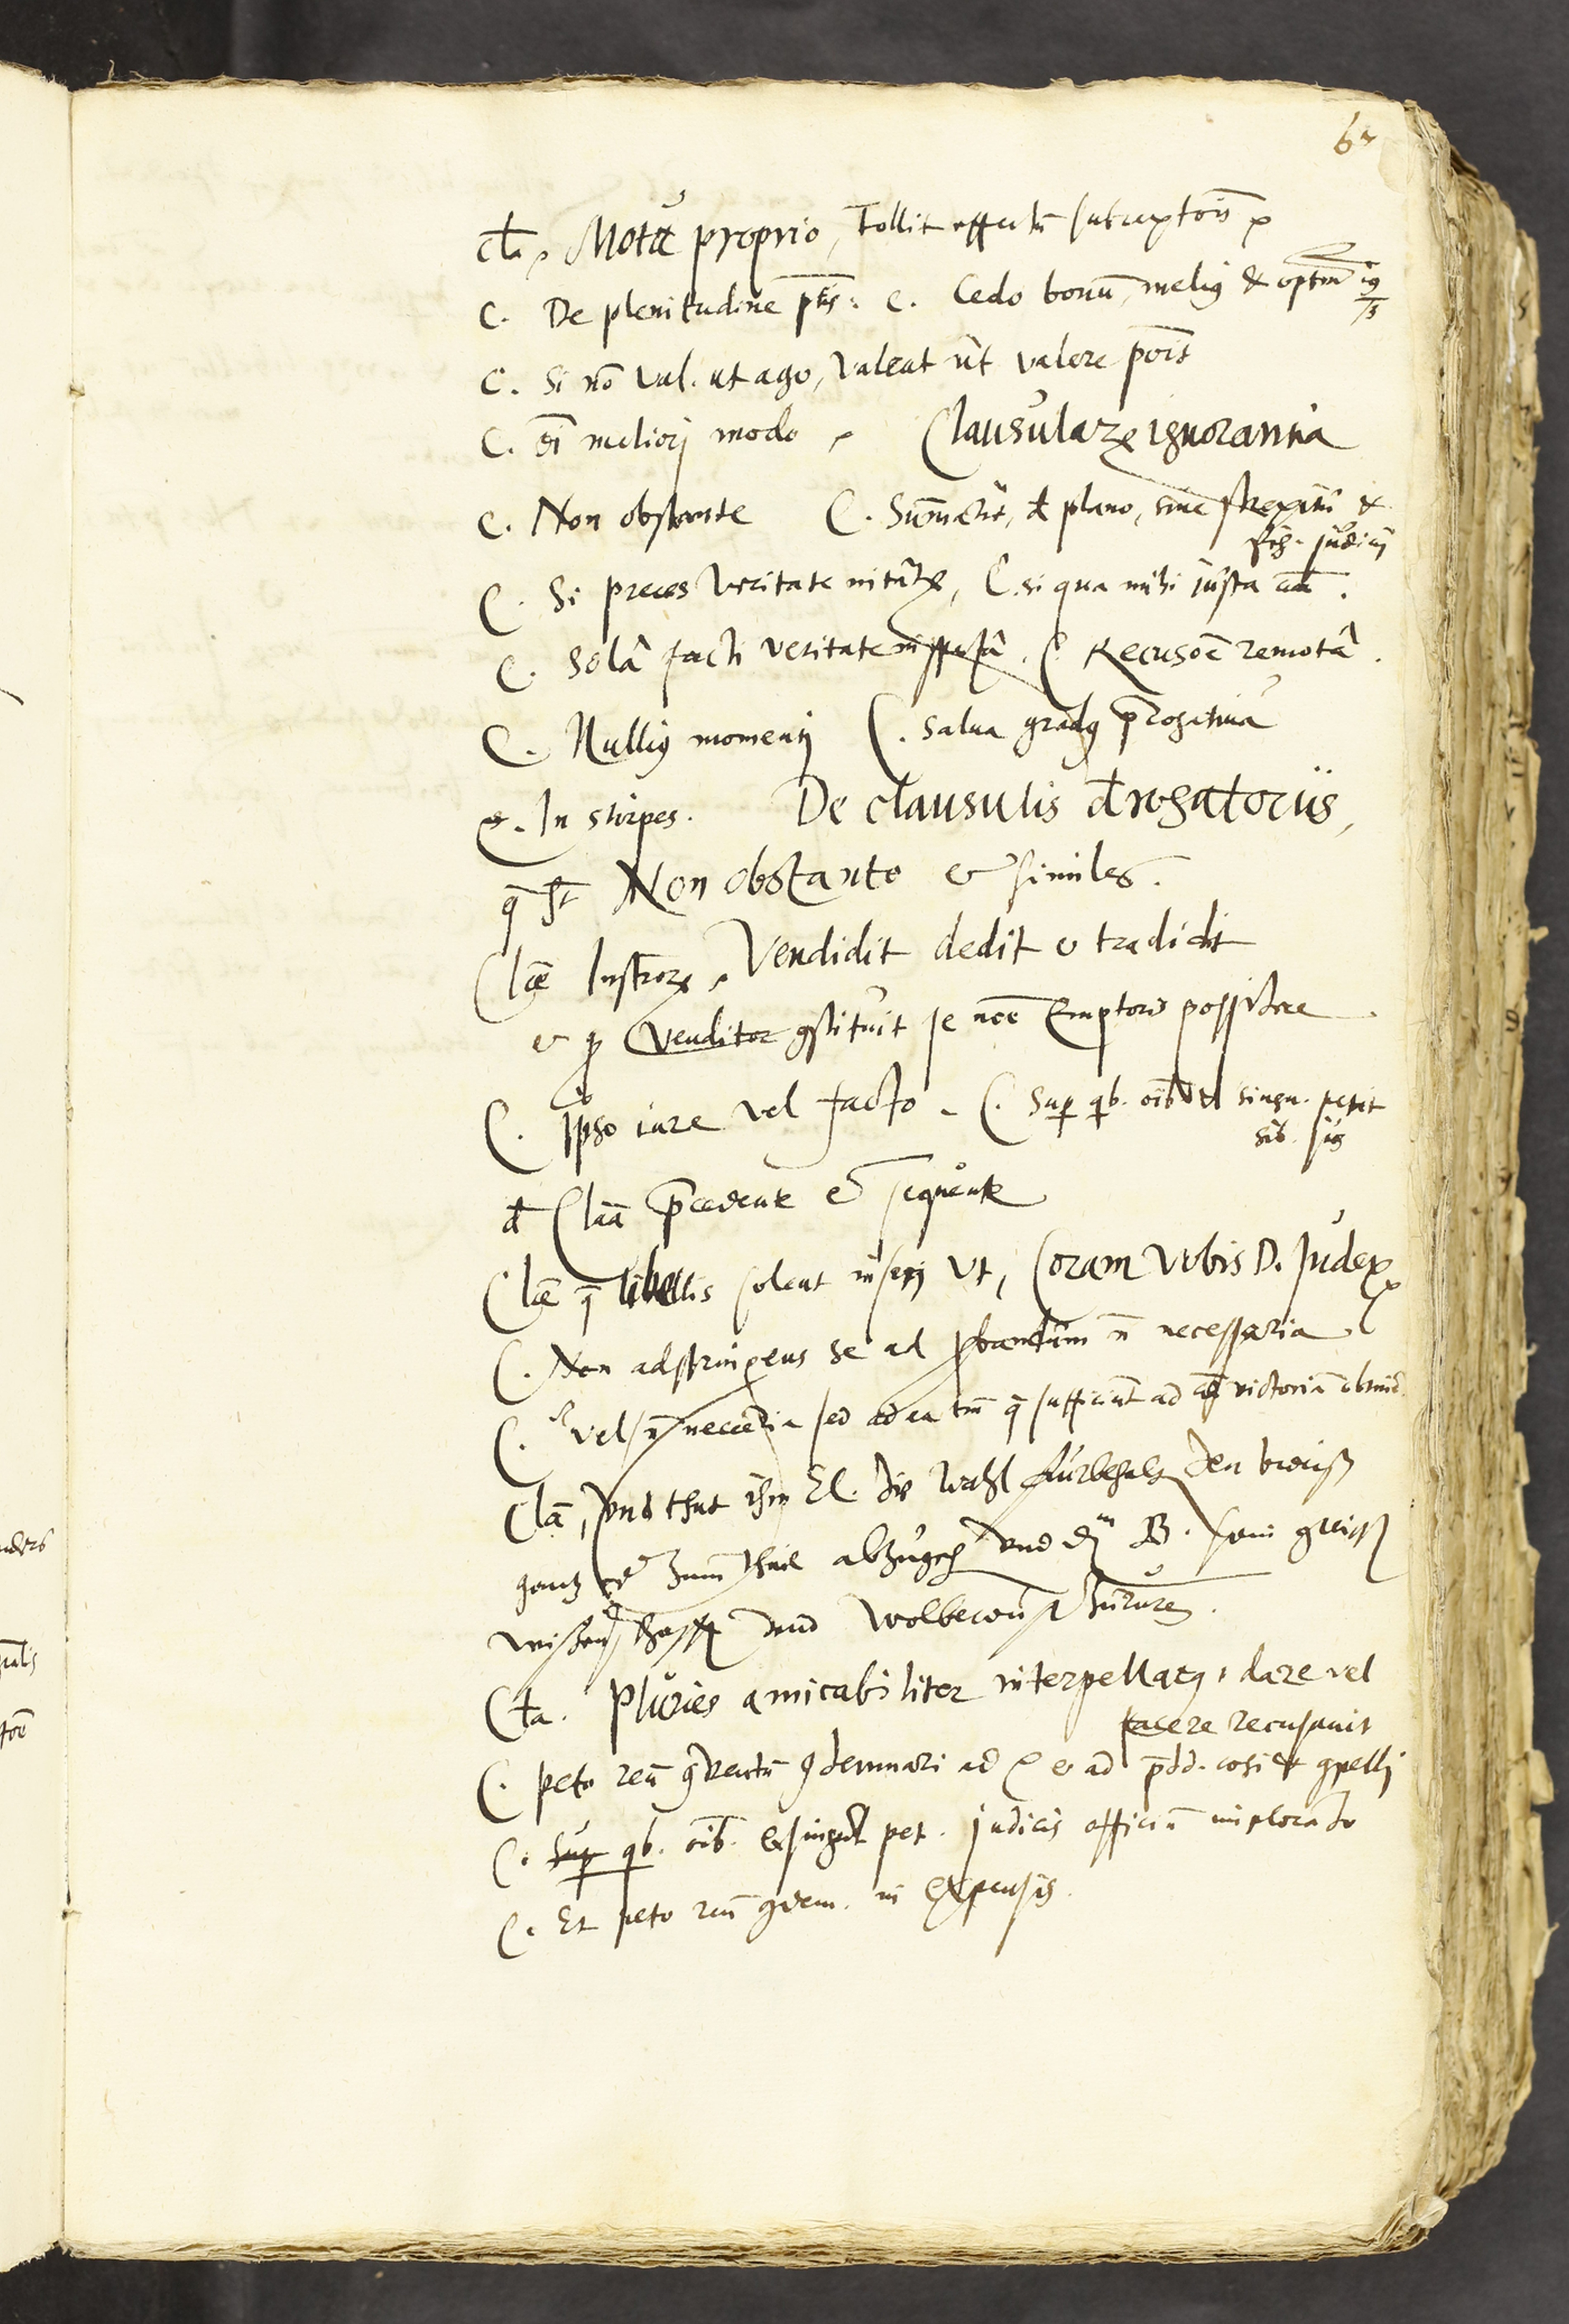 6
cła. Motu proprio, Tollit effectū subreptōis
C. De plenitudine ptīs: C. Cedo bonū, melig & optm̄ ig
C. Si nō val. ut ago, valeat ut valere pōit
C. ōi meliorj modo Clausularꝝ ignorantia
C. Non obstante C. Sum̄arie, đ plano, sine strepitu &
fig. judicij
C. Si preces veritate nitātꝝ, C. si qua mihi justa cā.
C. Solâ facti veritate inspectâ. C. Recusōe remotâ.
C. Nullig momentj C. salua gradg p̄rogatiua
C. In stirpes. De clausulis đrogatoriis,
q̄ st̄ Non obstante & similes.
Clāe Instrorꝝ Vendidit dedit & tradidit
& ꝙ Venditor gstituit se nōē Emptoris possidere
C. Ipso iure vel facto. C. Suꝑ qb. oib. & singu. petit
sib. jus
đ Clāa p̄cedente & sequente
Clāe q̄ libellis solent inserj Vt, Coram Vobis D. Judex
C. Non adstringens se ad ꝓbandum n̄ necessaria
C. vel n̄ neccēria sed ad ea tm̄ q̄ sufficiūt ad victoriā obtinē.
Clā, vnd thut ihm El. die Wahl fürbehalt den beweiß
gantz od zum theil abzugeh vnd dm B. sein gwiss
wissenschafft vnd wolbewust
Cła. Pluries amicabiliter interpellatg, dare vel
facere recusauit
C. peto reū gventū gdemnari ad & ad p̄dd. cogi & gpellj
C. Suꝑ qb. oib. & singul pet. judicis officiū implorādo
C. Et peto reū gdem. in expensis.